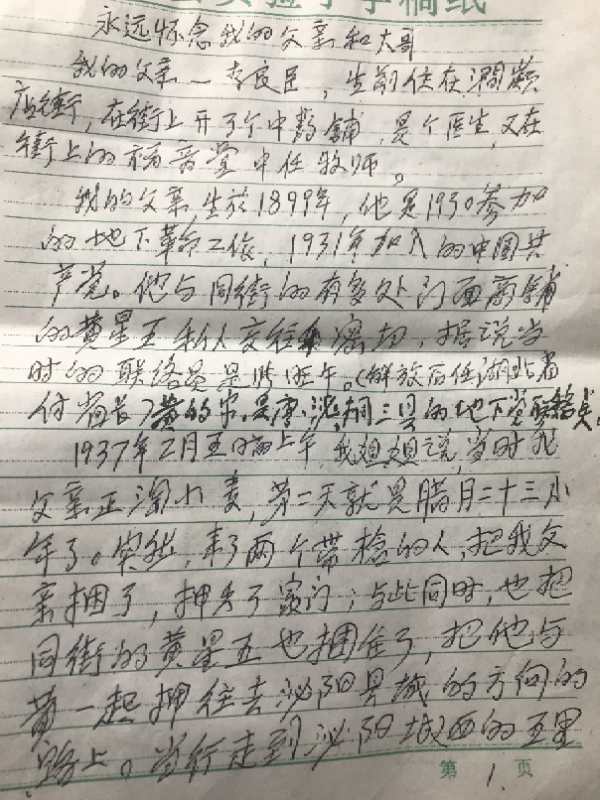 实验小学稿纸
永远怀念我的父亲和大哥
我的父亲一李良臣，生前住在涧岭
店街，在街上开了个中药铺，是个医生，又在
街上的福音堂中任牧师。
我的父亲，生于1899年，他是1930参加
的地下革命工作，1931年加入的中国共
产党。他与同街的有多处门面商铺
的黄星五私人交往密切，据说当
时的联络员是 。（解放后任湖北省
付省长）黄的家是唐、泌、桐三县的地下党联络点。
1937年2月五日上午，我姐姐说，当时我
父亲正淘小麦，第二天就是腊月二十三小
年了。突然，来了两个带枪的人，把我父
亲捆了，押出了家门；与此同时，也把
同街的黄星五也捆住了，把他与
黄一起押往去泌阳县城的方向的
路上。当行走到泌阳城西的五里
第1.页